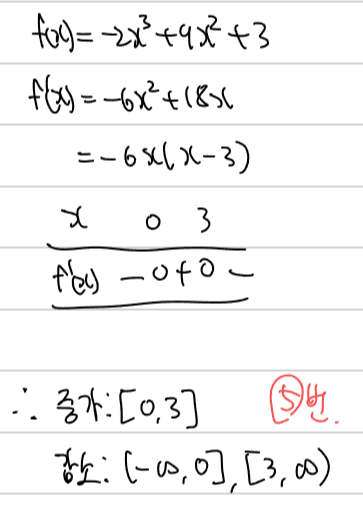 f(x)=-2x³+9x²+3
f'(x)=-6x²+18x
=-6x(x-3)
x 0 3
f'(x) - 0 + 0 -
∴ 증가: [0,3] ⑤번.
감소: (-∞,0], [3,∞)